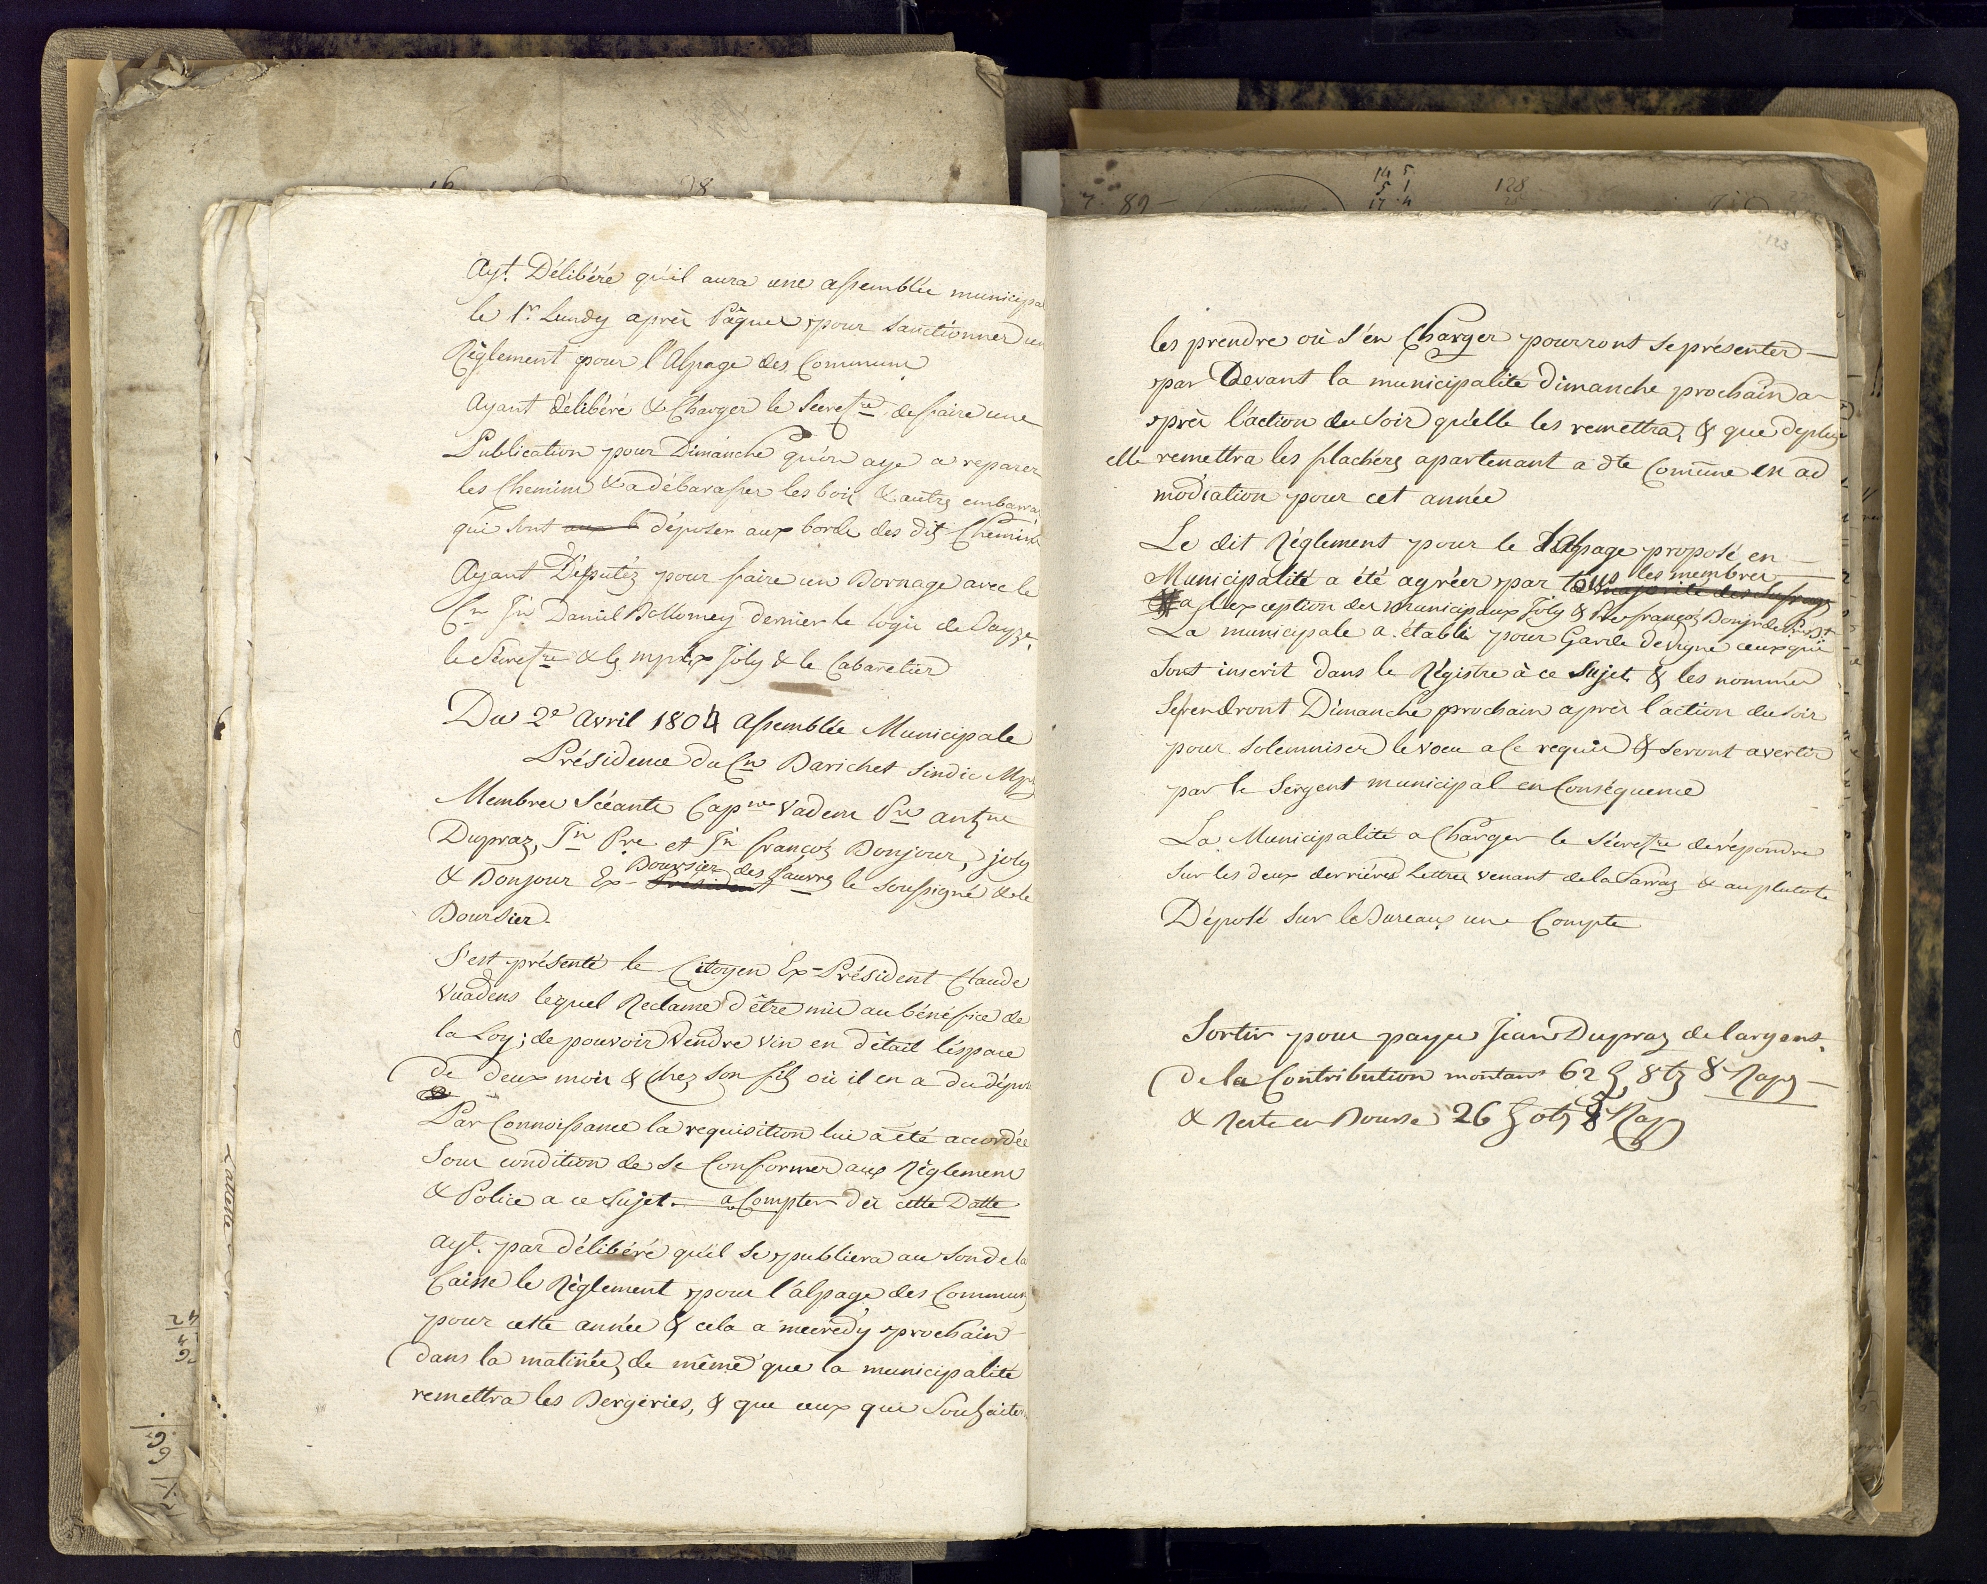 Ayt. Délibéré qu'il aura une assemblée municipa
le 1r. Lundy après Pâques pour sanctionner un
Règlement pour l'Alpage des Communs
Ayant délibéré & Charger le Secretre de faire une
Publication pour Dimanche qu'on aye a reparer
les Chemins & a débarasser les bois & autres embarras
qui sont déposer aux bords des dits Chemins
Ayant Députéz pour faire un Bornage avec le
Cn Jn Daniel Bollomey dernier le logis de
le Sécretre & les mplx Joly & le Cabaretier
Du 2e Avril 1804 Assemblée Municipale
Présidence du Cn Barichet Sindic
Membres Séants Capne Vadens Pre antne
Dupraz, Jn Pre et Jn françois Bonjour, joly
& Bonjour Ex- Boursier des pauvres le soussigné & le
Boursier.
S'est présenté le Citoyen Ex-Président Claude
Vuadens lequel Reclame d'être mis au bénéfice de
la Loy; de pouvoir Vendre Vin en détail l'éspace
de deux mois & Chez son fils où il en a du dépot
Par Connoissance la requisition lui a été accordée
Sous condition de se Conformer aux Règlemens
& Police a ce Sujet. a Compter dès cette Datte
ayt. par délibéré qu'il se publiera au son de la
Caisse le Règlement pour l'alpage des Communs
pour cette année & cela a mecredy prochain
dans la matinée, de même que la municipalité
remettra les Bergeries, & que ceux qui Souhaiter
123
les prendre où s'en Charger pourront se présenter
par Devant la municipalité dimanche prochain a
près l'action du soir qu'elle les remettra, & que deplus
elle remettra les flachéres apartenant a dte Comune en ad
modiation pour cet année
Le dit Règlement pour le dit Alpage proposé en
Municipalité a été agréer par tous les membres
a l'exception des Municipaux Joly & Pre françois Bonjr
La municipale a établi pour Garde de Vigne ceux qui
Sont inscrit dans le Régistre à ce Sujet & les nommés
Se rendront Dimanche prochain après l'action du soir
pour solemniser le voeu a ce requis & seront avertis
par le Sergent municipal en Conséquence
La Municipalité a Charger le Sécretre de répondre
Sur les deux derrières Lettres venant de la Sarraz & au plutot
Déposé sur le Bureaux une Compte
Sortir pour payer Jean Dupraz de l'argent.
de la Contribution montant 62 8 8 Rap
& Reste en Bourse 26 0 8 Rap